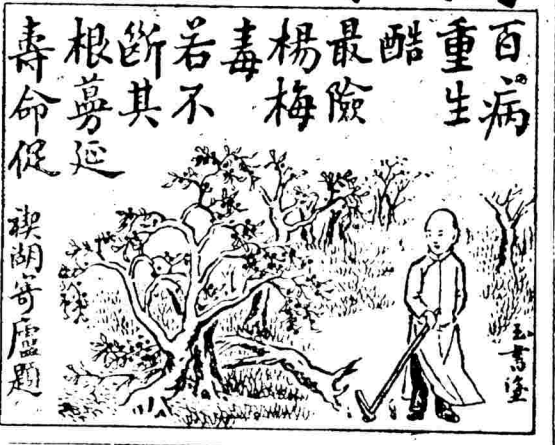 百病
重生
酷
最險
楊梅
毒
若不
斷其
根蔓延
壽命促
禊湖寄廬題
玉書